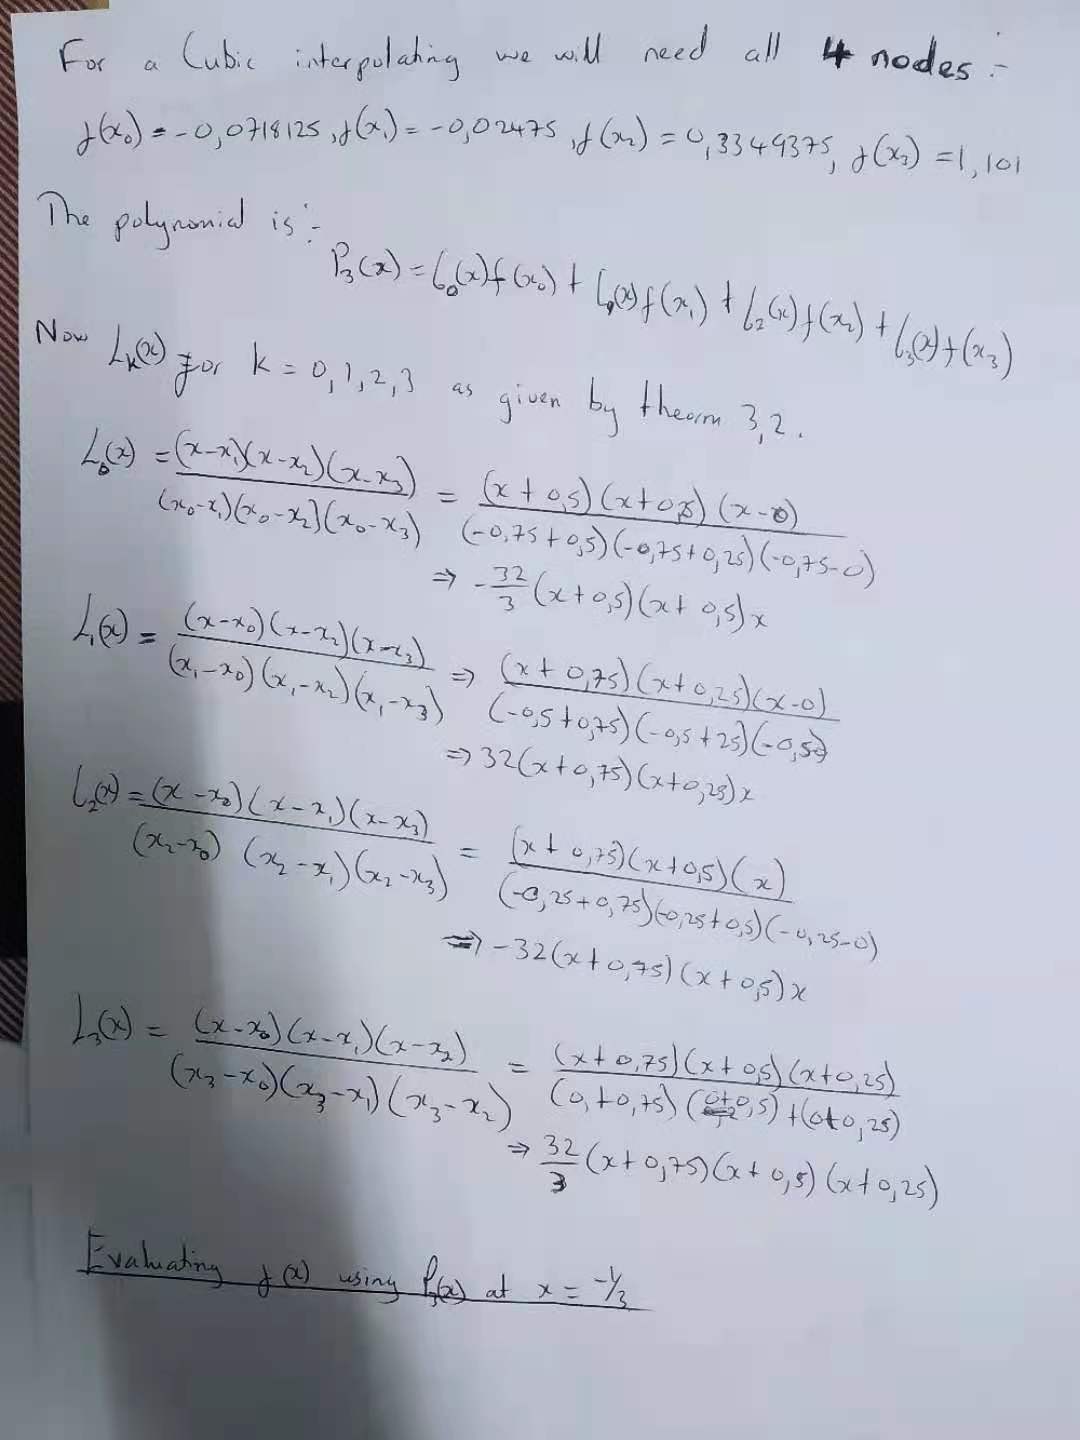 For a Cubic interpolating we will need all 4 nodes :-
f(x₀) = -0,0718125, f(x₁) = -0,02475, f(x₂) = 0,3349375, f(x₃) = 1,101
The polynomial is :-
P₃(x) = L₀(x)f(x₀) + L₁(x)f(x₁) + L₂(x)f(x₂) + L₃(x)f(x₃)
Now Lₖ(x) for k = 0,1,2,3 as given by theorm 3,2.
L₀(x) = (x-x₁)(x-x₂)(x-x₃) / (x₀-x₁)(x₀-x₂)(x₀-x₃) = (x+0,5)(x+0,5)(x-0) / (-0,75+0,5)(-0,75+0,25)(-0,75-0)
⇒ -32/3 (x+0,5)(x+0,5)x
L₁(x) = (x-x₀)(x-x₂)(x-x₃) / (x₁-x₀)(x₁-x₂)(x₁-x₃) ⇒ (x+0,75)(x+0,25)(x-0) / (-0,5+0,75)(-0,5+25)(-0,5)
⇒ 32(x+0,75)(x+0,25)x
L₂(x) = (x-x₀)(x-x₁)(x-x₃) / (x₂-x₀)(x₂-x₁)(x₂-x₃) = (x+0,75)(x+0,5)(x) / (-0,25+0,75)(-0,25+0,5)(-0,25-0)
⇒ -32(x+0,75)(x+0,5)x
L₃(x) = (x-x₀)(x-x₁)(x-x₂) / (x₃-x₀)(x₃-x₁)(x₃-x₂) = (x+0,75)(x+0,5)(x+0,25) / (0,+0,75)(0+0,5)+(0+0,25)
⇒ 32/3 (x+0,75)(x+0,5)(x+0,25)
Evaluating f(x) using P₃(x) at x = -1/3